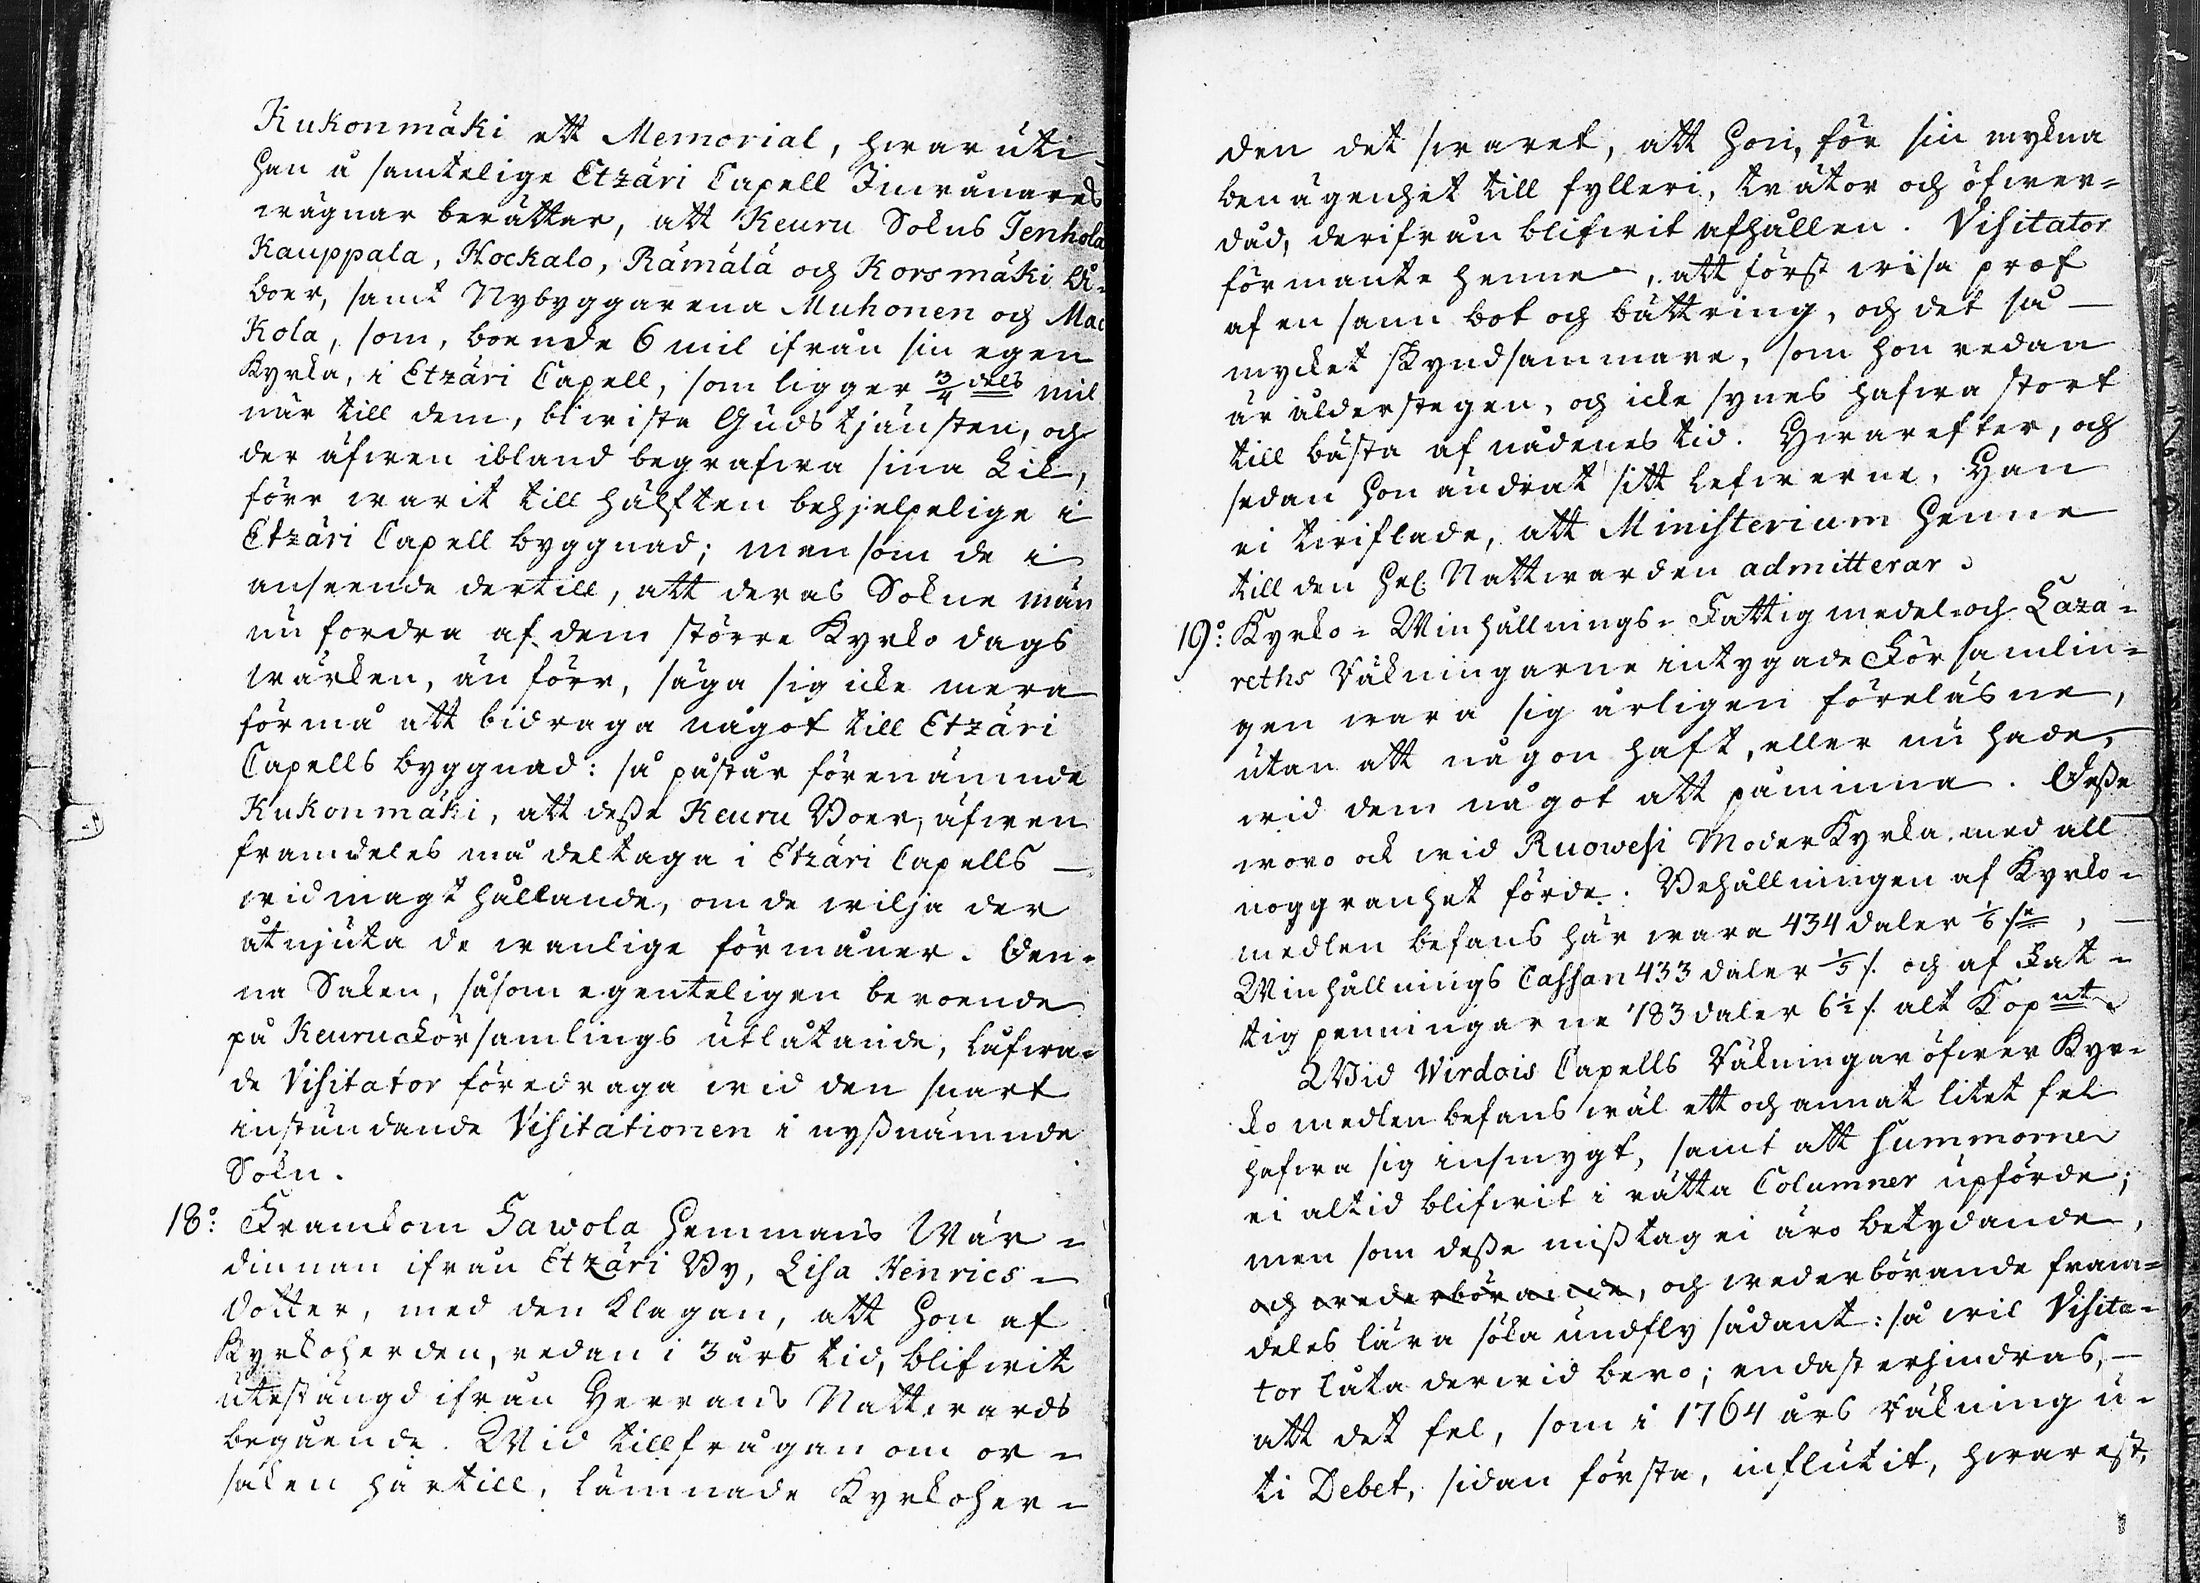 Kukonmäki ett Memorial, hwaruti
han å samtelige Etzäri Capell Inwånares
wägnar berättar, att Keuru Sokns Jenhola
Kauppala, Hockalo, Rämälä och Korsmäki Å-
boer, samt Nybyggarena Muhonen och Mac
Kola, som, boende 6 mil ifrån sin egen
Kyrka, i Etzäri Capell, som ligger 3/4 dels mil
när till dem, biwista Gudstjänsten, och
der äfwen ibland begrafwa sina Lik,
förr warit till hälften behjelpelige i
Etzäri Capell byggnad; men som de i
anseende dertill, att deras Sokne män
nu fordra af dem större Kyrko dags
wärken, än förr, säga sig icke mera
förmå att bidraga något till Etzäri
Capells byggnad: så påstår förenämnde
Kukonmäki, att deße Keuru Boer, äfwen
framdeles må deltaga i Etzäri Capells –
widmagthållande, om de wilja der
åtnjuta de wanlige förmåner. Den-
na Saken, såsom egenteligen beroende
på Keuru Församlings utlåtande, låfwa-
de Visitator föredraga wid den snart
instundande Visitationen i nyßnämnde
Sokn.
18º: Framkom Jawola hemmans Wär-
dinnan ifrån Etzäri By, Lisa Henrics-
dotter, med den klagan, att hon af
Kyrkoherden, redan i 3 års tid, blifwit
utestängd ifrån Herrans Nattwards
begående. Wid tillfrågan om or-
saken härtill, lämnade Kyrkoher-
den det swaret, att hon, för sin mykna
benägenhet till fylleri, trätor och öfwer-
dåd, derifrån blifwit afhållen. Visitator
förmante henne, att först wisa prof
af en sann bot och bättring, och det så –
mycket skyndsammare, som hon redan
är ålderstegen, och icke synes hafwa stort
till bästa af nådenes tid. Hwarefter, och
sedan hon ändrat sitt lefwerne, Han
ei twiflade, att Ministerium henne
till den Hel. Nattwarden admitterar.
19º: Kyrko- Winhållnings- Fattigmedel- och Laza-
reths Räkningarne intygade Församlin-
gen wara sig årligen föreläsne,
utan att någon haft, eller nu hade,
wid dem något att påminna. Deße
woro ock wid Ruowesi Moderkyrka med all
noggranhet förde. Behållningen af Kyrko-
medlen befans här wara 434 daler 1/6 s:e, –
Winhållnings Cassan 433 daler 1/5 s. och af Fat-
tig penningarne 783 daler 6 1/2 s. alt Kopnt.
Wid Wirdois Capells Räkningar öfwer Kyr-
ko medlen befans wäl ett och annat litet fel
hafwa sig insmygt, samt att Summorne
ei altid blifwit i rätta Columner upförde;
men som deße mißtag ei äro betydande,
och wederbörande, och wederbörande fram-
deles lära söka undfly sådant: så wil Visita-
tor låta derwid bero; endast erhindras, –
att det fel, som i 1764 års Räkning u-
ti Debet, sidan första, influtit, hwarest,